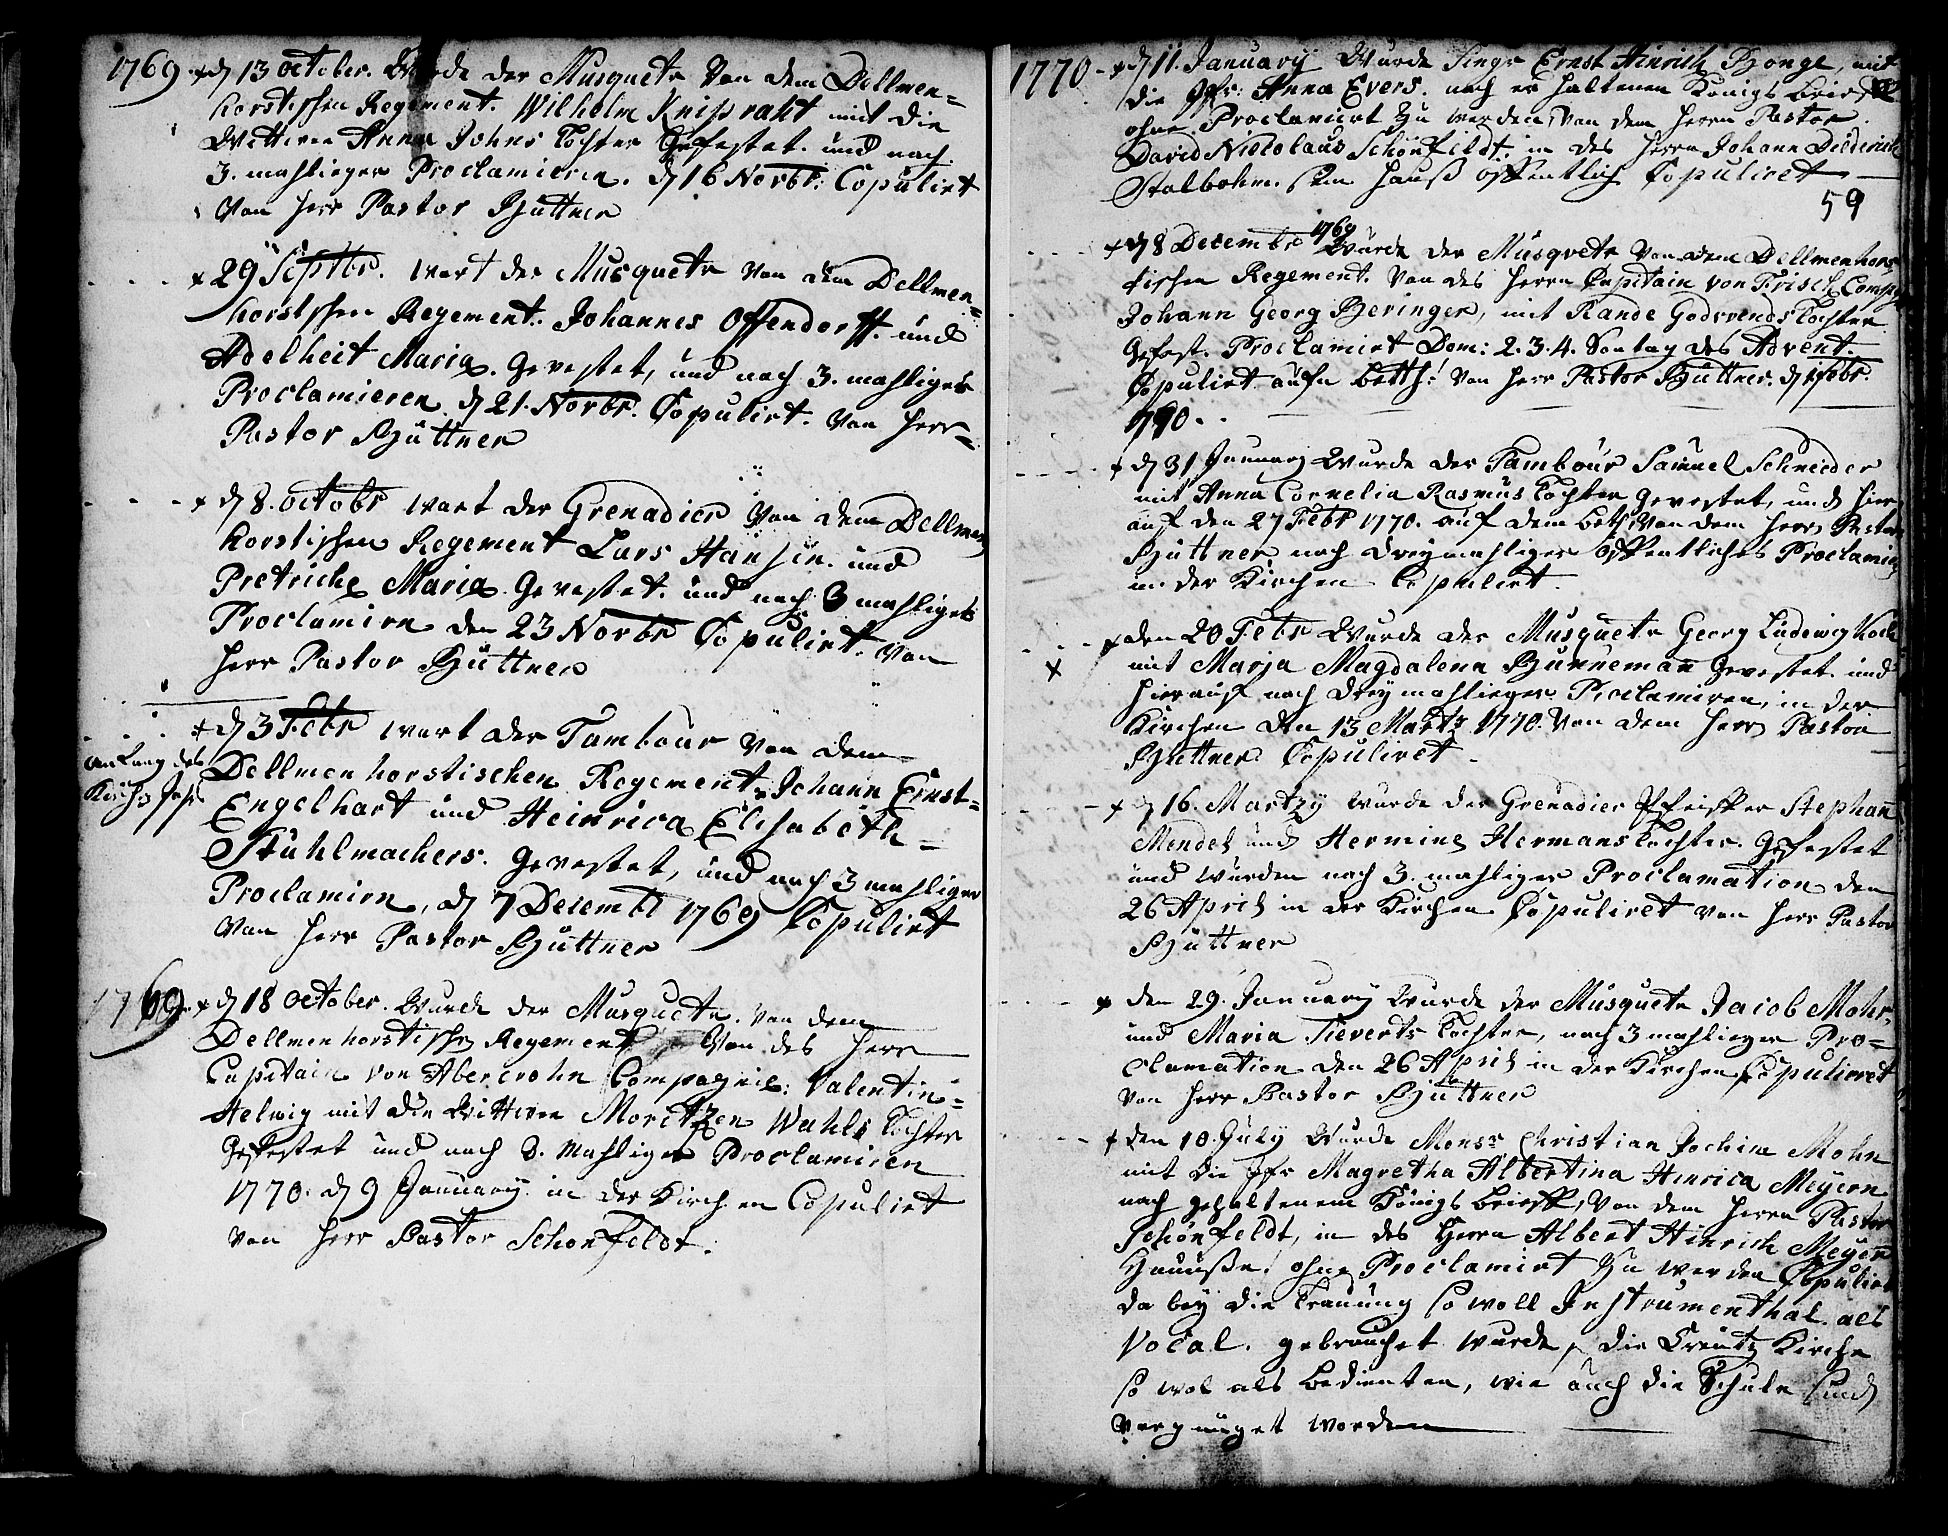 1769. d 13 October. Wurde der Musquetr Von dem Dellmen-
horstischen Regement. Wilhelm Knipraht mit die
Wittwe Anna Johns Tochter Gefestet. und nach
3. mahlieger Proclamieren. d 16 Novbr: Copuliert
Von Herr Pastor Büttner
29 Septbr. wart der Musquetr Von dem Dellmen-
horstschen Regement. Johannes Offendorff. und
Adelheit Maria. Gevestet, und nach 3. mahliger
Proclamieren d 21. Novbr. Copuliert. Von Herr-
Pastor Büttner
d 8. octobr wart der Grenadier Von dem Dellmen
horstischen Regement Lars Hansen. und
Pretriche Maria Gevestet. und nach 3 mahliger
Proclamirn den 23 Novbr Copuliert. Von
Herr Pastor Büttner
d 3 Febr wart der Tambour Von dem
Anfang des
Kirchen Jahr
Dellmenhorstischen Regement, Johann Ernst-
Engelhart und Heinrica Elisabeth-
Stuhlmachers. Gevestet, und nach 3 mahliger
Proclamirn, d 7 Decembr 1769 Copuliert
Von Herr Pastor Büttner
1769. d 18 October. Wurde der Musquetr. Von dem
Dellmenhorstischen Regement Von des Herr
Capitain von Abercrohn Compagnie: Valentin-
Helwig mit die Wittwe Moritzen Wahls Tochter
Gefestet und nach 3. mahliger Proclamiren
1770. d 9 January. in der Kirchen Copuliert
Von Herr Pastor Schönfeldt.
1770 - d 11. January Wurde Singr Ernst Hinrich Bonge, mit
die Jfr: Anna Evers. nach erhaltenen Königs brief
ohne Proclamirt zu werden, Von dem Herrn Pastor.
David Nicolaus Schönfeldt. in des Herrn Johann Diederich
Stalbohm. sein Hauß öffentlich Copuliret
59
d 8 Decembr 1769 Wurde der Musqvetr Von dem Dellmenhors
tischen Regement. Von des Herrn Capitain von Frisch Comp
Johann Georg Beringer, mit Rande Godsvends Tochter
Gefest. Proclamirt Dom: 2. 3. 4. Sontag des Advent.
Copuliert aufn Beth: Von Herr Pastor Büttner. d 1 Febr.
1770.
d 31 January Wurde der Tambour Samuel Schneeder
mit Anna Cornelia Rasmus Tochter Gevestet, und hier
auf den 27 Febr 1770. auf dem Beth Von dem Herr Pastor
Büttner nach dreymahliger öffentliches Proclamirn
in der Kirchen Copuliert.
den 20 Febr Wurde der Musquetr Georg Ludewig Koch
mit Marja Magdalena Bünneman Gevestet und
hierauf nach dreymahlieger Proclamiren, in der
Kirchen den 13 Martz 1770. Von dem Herr Pastor
Büttner Copuliret
d 16. Martzy wurde der Grenadier Pfeiffer Stephan
Mendel und Hermine Hermans Tochter. Gefestet
und wurden nach 3. mahliger Proclamation den
26 April in der Kirchen Copuliret von Herr Pastor
Büttner
den 29. January Wurde der Musquetr Jacob Mohr-
und Maria Sieverts Tochter, nach 3 mahlieger Pro=
clamation den 26 April in der Kirchen Copulieret
Von Herr Pastor Büttner
den 10. July Wurde Monsr Christian Jochim Mohn
mit die Jfr Magretha Albertina Hinrica Meyern
nach gehaltenem Königs brieff, Von dem Herrn Pastor
Schönfeldt, in des Herrn Albert Hinrich Meyern
Hauuße, ohne Proclamirt zu werden Copuliert
da bey die Trauung so woll Instrumenthal. als
Vocal. gebrauchet wurde, die Creutz Kirche
so wol als bedienten, wie auch die Schule sind
vergnüget worden